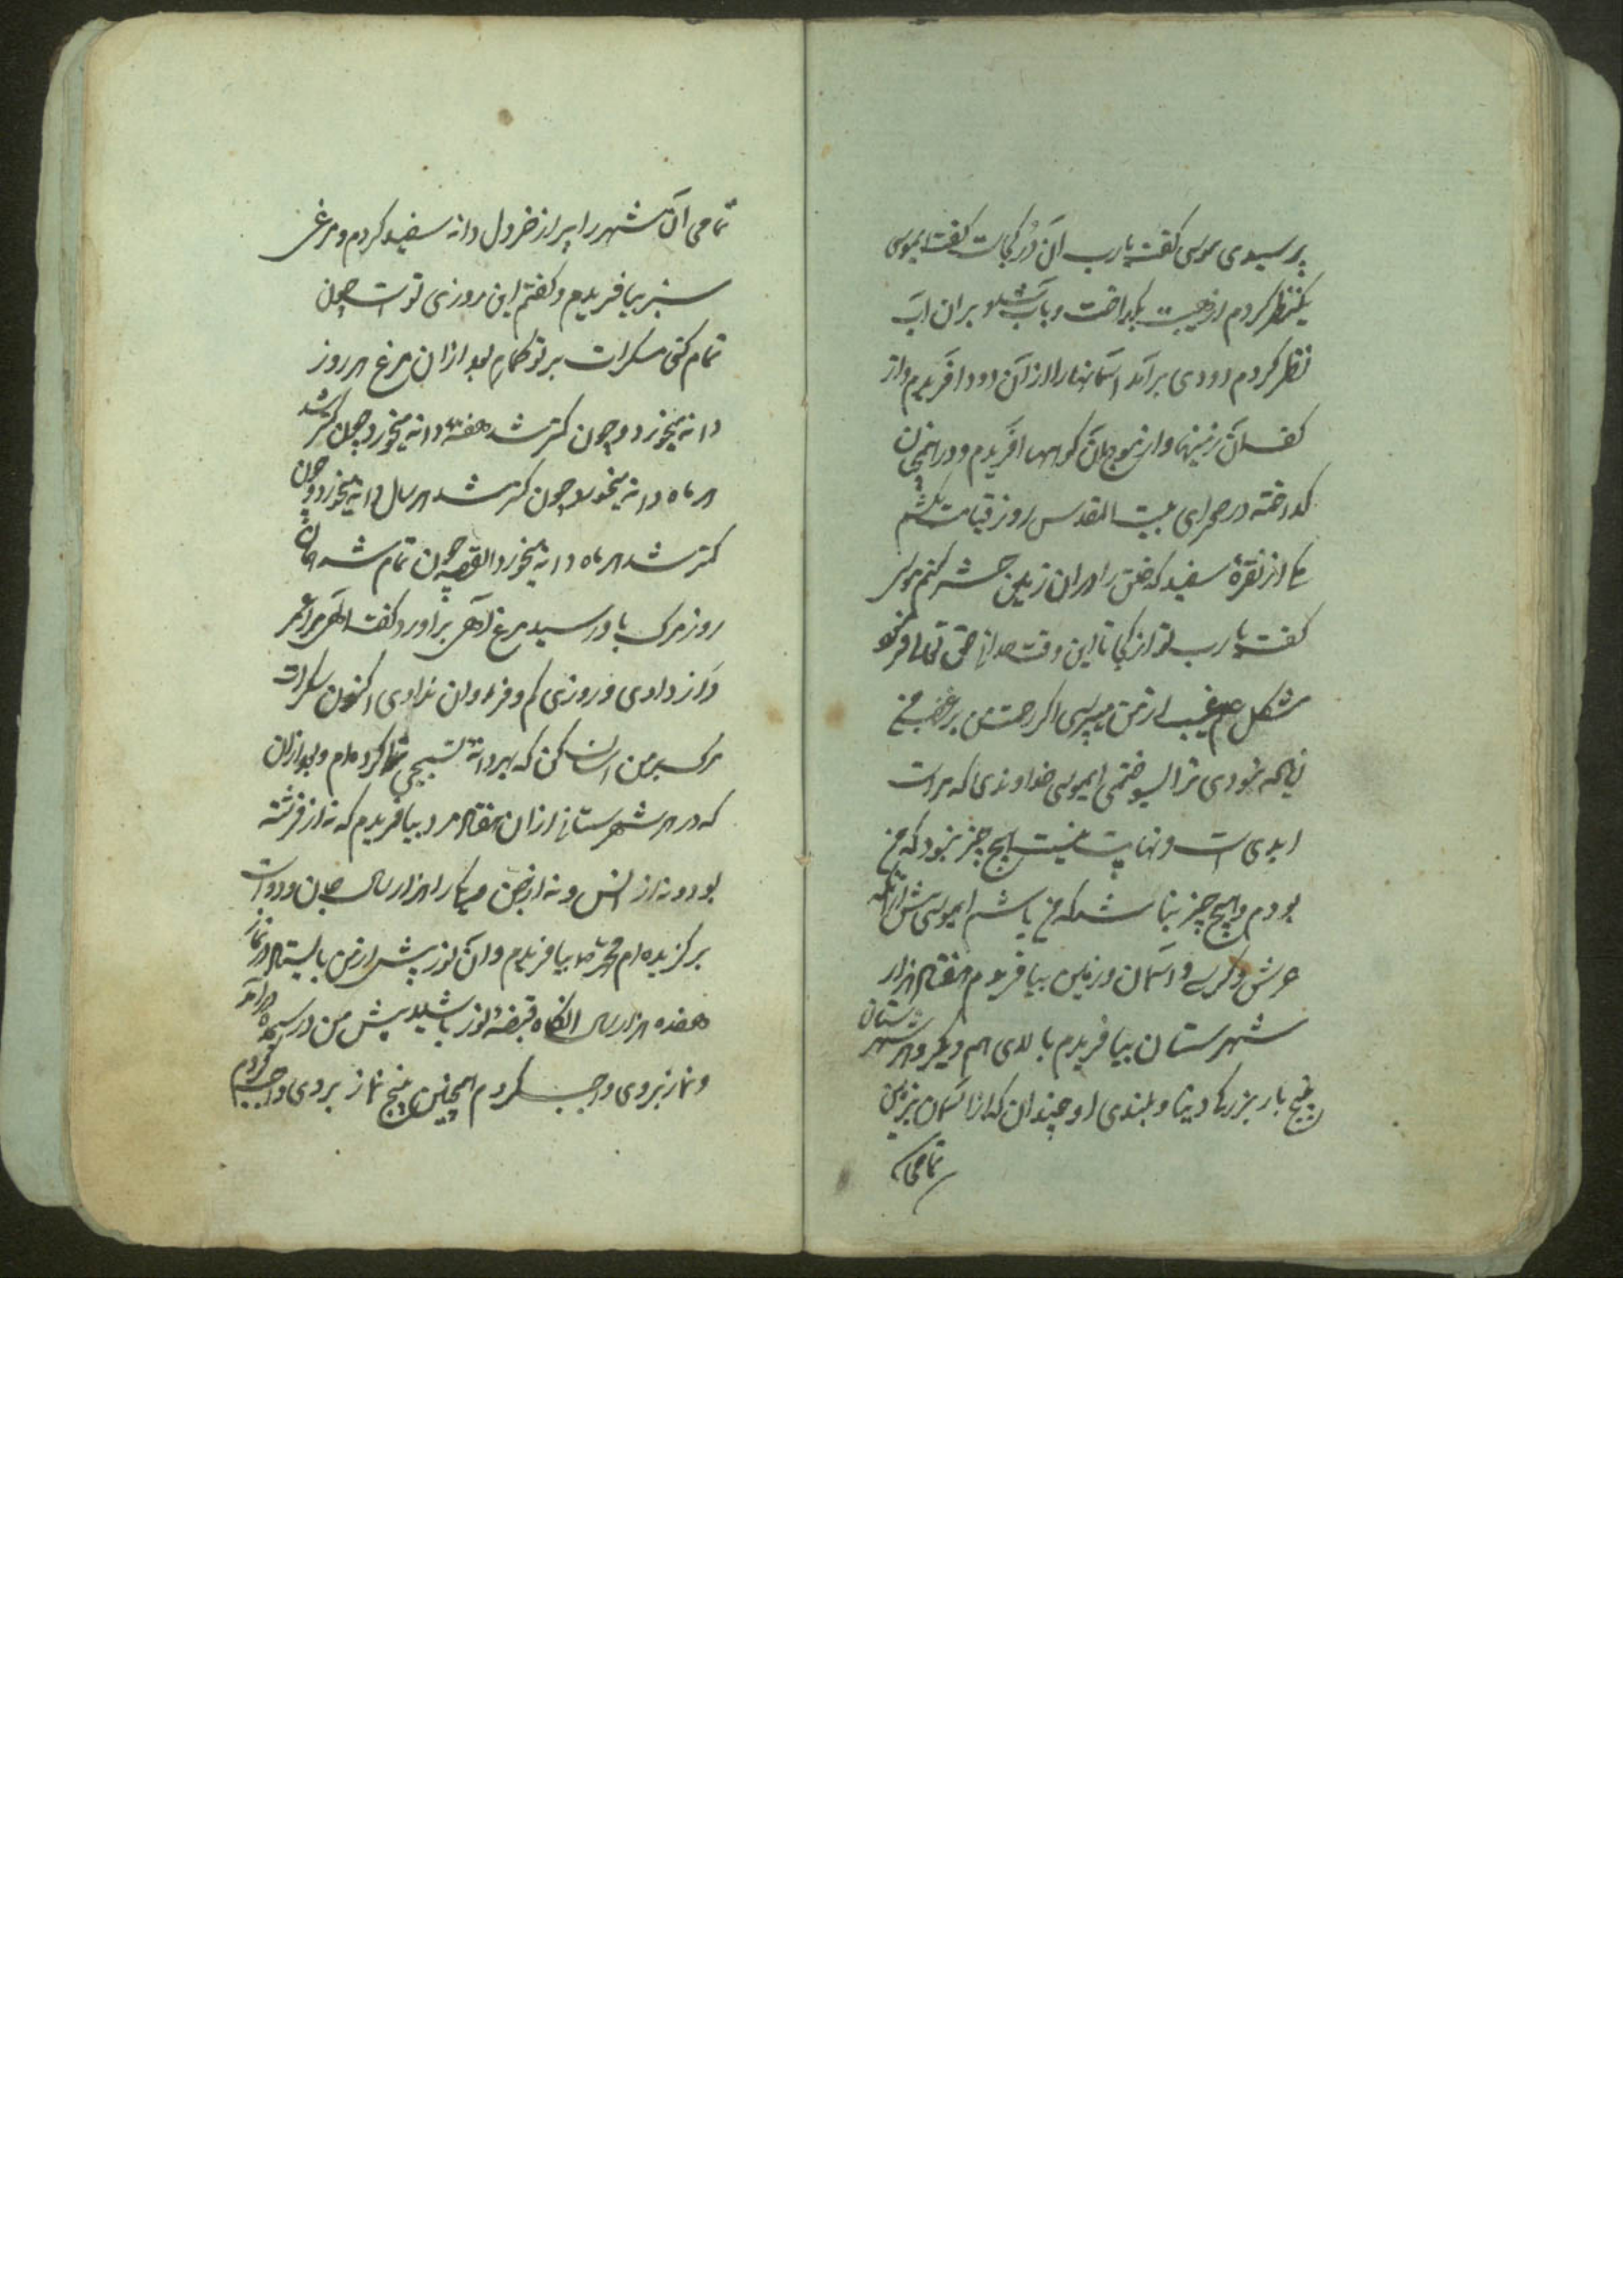 پرسیدی موسی گفت یارب آن دُر کجاست گفت ایموسی
یکنظر کردم از هیبت بگداخت و آب شد و بران آب
نظر کردم دودی برآمد آسمانها را از آن دود آفریدم و از
کف آن زمینها و از موج آن کوهها آفریدم و در
گداخته در صحرای بیت المقدس روز قیامت
از نقره سفید که خلق را بران زمین حشر کنم موسی
گفت یارب تو از کجا تا این وقت حق تعالی فرمود
مشکل علم غیب از من میپرسی اگر رحمت من بر غضب من
نبودی ترا بسوختمی ایموسی خداوندی که مراست
ابدی است و نهایت نیست هیچ چیز نبود که من
بودم و هیچ چیز نباشد که من باشم ایموسی پیش از آنکه
عرش و کرسی و آسمان و زمین بیافریدم هفتاد هزار
شهرستان بیافریدم بالای هم دیگر و هر شهرستان
پنج بار بزرگی دنیا و بلندی او چندان که از آسمان بزمین
تمامی
تمامی آن شهر را پر از خردل دانه سفید کردم و مرغی
سبز بیافریدم و گفتم این روزی تو است چون
تمام کنی سکرات بر تو گمارم بعد ازان مرغ هر روز
دانه میخورد و چون کمتر شد هفته دانه میخورد چون کمتر شد
هر ماه دانه میخورد چون کمتر شد هر سال دانه میخورد و چون
کمتر شد هر ماه دانه میخورد القصه چون تمام شد
روز مرگ باو رسید مرغ آهی برآورد و گفت الهی مرا عمر
دراز دادی و روزی کم و فراوان ندادی اکنون سکرات
مرگ بر من آسان کن که بهر دانه تسبیحی کرده‌ام و بعد ازان
که در هر شهرستانی ازان هفتاد مرد بیافریدم که نه از فرشته
بودو نه از انس و نه از جن هزار سال جان
برگزیده‌ام محمد بیافریدم و آن نور پیش از من بایستاد در نماز
هفده هزار سال آنگاه قبضهٔ نور پیش من در سجده درآمد
و نماز بر وی واجب کردم همچنین پنج نماز بر وی واجب کردم